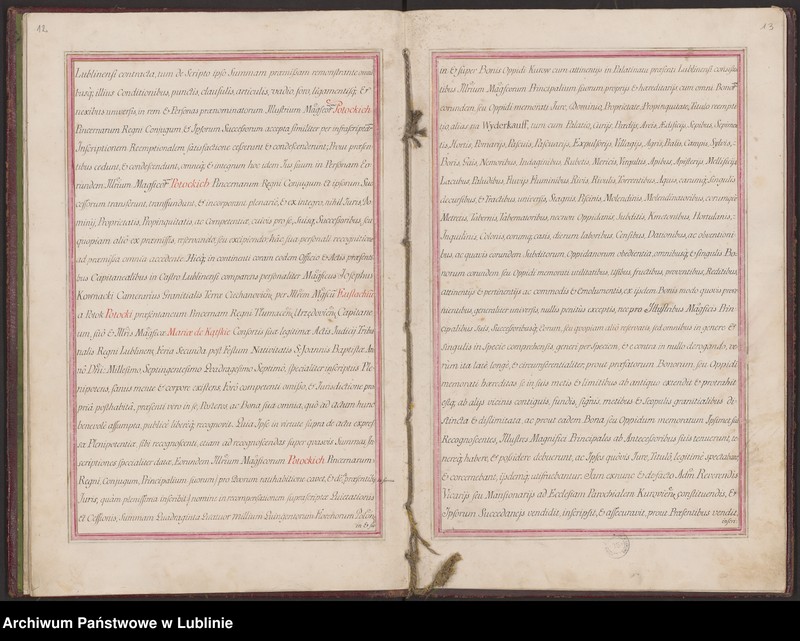 12.
Lublinensi contracta, tum de Scripto ipso Summam præmissam remonstrante omni
busq; illius Conditionibus, punctis, clausulis, articulis, vadio, foro, ligamentisq; &
nexibus universis, in rem & Personas prænominatorum Illustrium Magficor Potockich
Pincernarum Regni Conjugum & Ipsorum Successorum accepta similiter per infrascriptam
Inscriptionem Reemptionalem satisfactione cesserunt & condescenderunt; Prout præsen
tibus cedunt, & condescendunt, omneq; & integrum hoc idem Jus suum in Personam Eo
rundem Illrium Magficor Potockich Pincernarum Regni Conjugum et ipsorum Suc
cessorum transferunt, transfundunt, & incorporant plenariè, & ex integro, nihil Juris, Do
minij, Proprietatis, Propinquitatis, ac competentiæ, cuivis pro se, Suisq; Successoribus, seu
quopiam alio ex præmissis, reservando seu excipiendo hac sua personali recognitione
ad præmissa omnia accedente. Hicq; in continenti coram eodem Officio & Actis præsenti
bus Capitanealibus in Castro Lublinensi comparens personaliter Magficus Josephus
Kownacki Camerarius Granitialis Terræ Ciechanovien, per Illrem Magficum Eustachiu
a Potok Potocki præsentaneum Pincernam Regni Tlumacens, Urzędovien, Capitane
um, suo & Illris Magficæ Mariæ de Kątskie Consortis suæ legitimæ Actis Judicij Tribu
nalis Regni Lublinen, Feria Secunda post Festum Nativitatis S: Joannis Baptistæ An
no Dni: Millesimo Septingentesimo Quadragesimo Septimo, specialiter inscriptus Ple
nipotens, sanus mente & corpore existens, Foro competenti omisso, & Jurisdictione pro
pria posthabita, præsenti vero in se, Posteros, ac Bona sua omnia, quo ad actum hunc
benevolè assumpta, publicè liberèq; recognovit. Quia Ipse in virtute supra de actu expres
sæ Plenipotentiæ sibi recognoscenti, etiam ad recognoscendas super quasvis Summas, In
scriptiones specialiter datæ, Eorundem Illrium Magficorum Potockich Pincernarum
Regni, Conjugum, Principalium suorum
Juris, quàm plenissimè inscribit) nomine in recompensationem suprascriptæ Quietationis
et Cessionis, Summam Quadraginta Quatuor Millium Quingentorum Florenorum Polon,
in & su
13
in & super Bonis Oppidi Kurow cum attinentijs in Palatinatu præsenti Lublinensi consisten
tibus Illrium Magficorum Principalium suorum proprijs & hæreditarijs cum omni Bonor
eorundem seu Oppidi memorati Jure, Dominio, Proprietate, Propinquitate, Titulo reempti
tio alias na Wyderkauff, tum cum Palatio, Curijs, Prædijs, Areis, Ædificijs, Sepibus, Sepimen
tis, Hortis, Pomarijs, Pascuis, Pascuarijs, Expulsorijs, Villagijs, Agris, Pratis, Campis, Sylvis,
Boris, Gais, Nemoribus, Indaginibus Rubetis, Mericis, Virgultis, Apibus, Apisterijs, Mellificijs,
Lacubus, Paludibus, Fluvijs, Fluminibus, Rivis, Rivulis, Torrentibus, Aquis, earumq; singulis
decursibus, & Tractibus universis, Stagnis, Piscinis, Molendinis, Molendinatoribus, eorumque
Metretis, Tabernis, Tabernatoribus, necnon Oppidanis, Subditis, Kmetonibus, Hortulanis,
Inquilinis, Colonis, eorumq; casis, dierum laboribus, Censibus, Dationibus, ac obventioni
bus, ac quavis eorundem Subditorum, Oppidanorum obedientia, omnibusq; & singulis Bo
norum eorundem seu Oppidi memorati utilitatibus, usibus, fructibus, proventibus, Reditibus,
attinentijs & pertinentijs ac commodis & emolumentis, ex ijsdem Bonis modo quovis prove
nientibus, generaliter universis, nullis penitus exceptis, nec pro Illustribus Magficis Prin
cipalibus Suis, Successoribusq; Eorum, seu quopiam alio reservatis, sed omnibus in genere &
singulis in Specie comprehensis, generi per Speciem, & è contra in nullo derogando, ve
rum ita latè longè, & circumferentialiter, prout præfatorum Bonorum seu Oppidi
memorati hæreditas se in suis metis & limitibus ab antiquo extendit & protrahit
estq; ab alijs vicinis contiguis, fundis, signis, metibus & Scopulis granitialibus di
stincta & dislimitata, ac prout eadem Bona seu Oppidum memoratum Ipsimet se
Recognoscentes, Illustres Magnifici Principales ab Antecessoribus suis tenuerunt, te
nereq; habere, & possidere debuerunt, ac Ipsos quovis Jure, Titulo, legitimè spectabant
& concernebant, ijsdemq; utifruebantur. Jam exnunc & de facto Adm Reverendis
Vicarijs seu Mansionarijs ad Ecclesiam Parochialem Kurovien, constituendis, &
Ipsorum Succedaneis vendidit, inscripsit, & assecuravit, prout Præsentibus vendit,
inscri:
Archiwum Państwowe w Lublinie